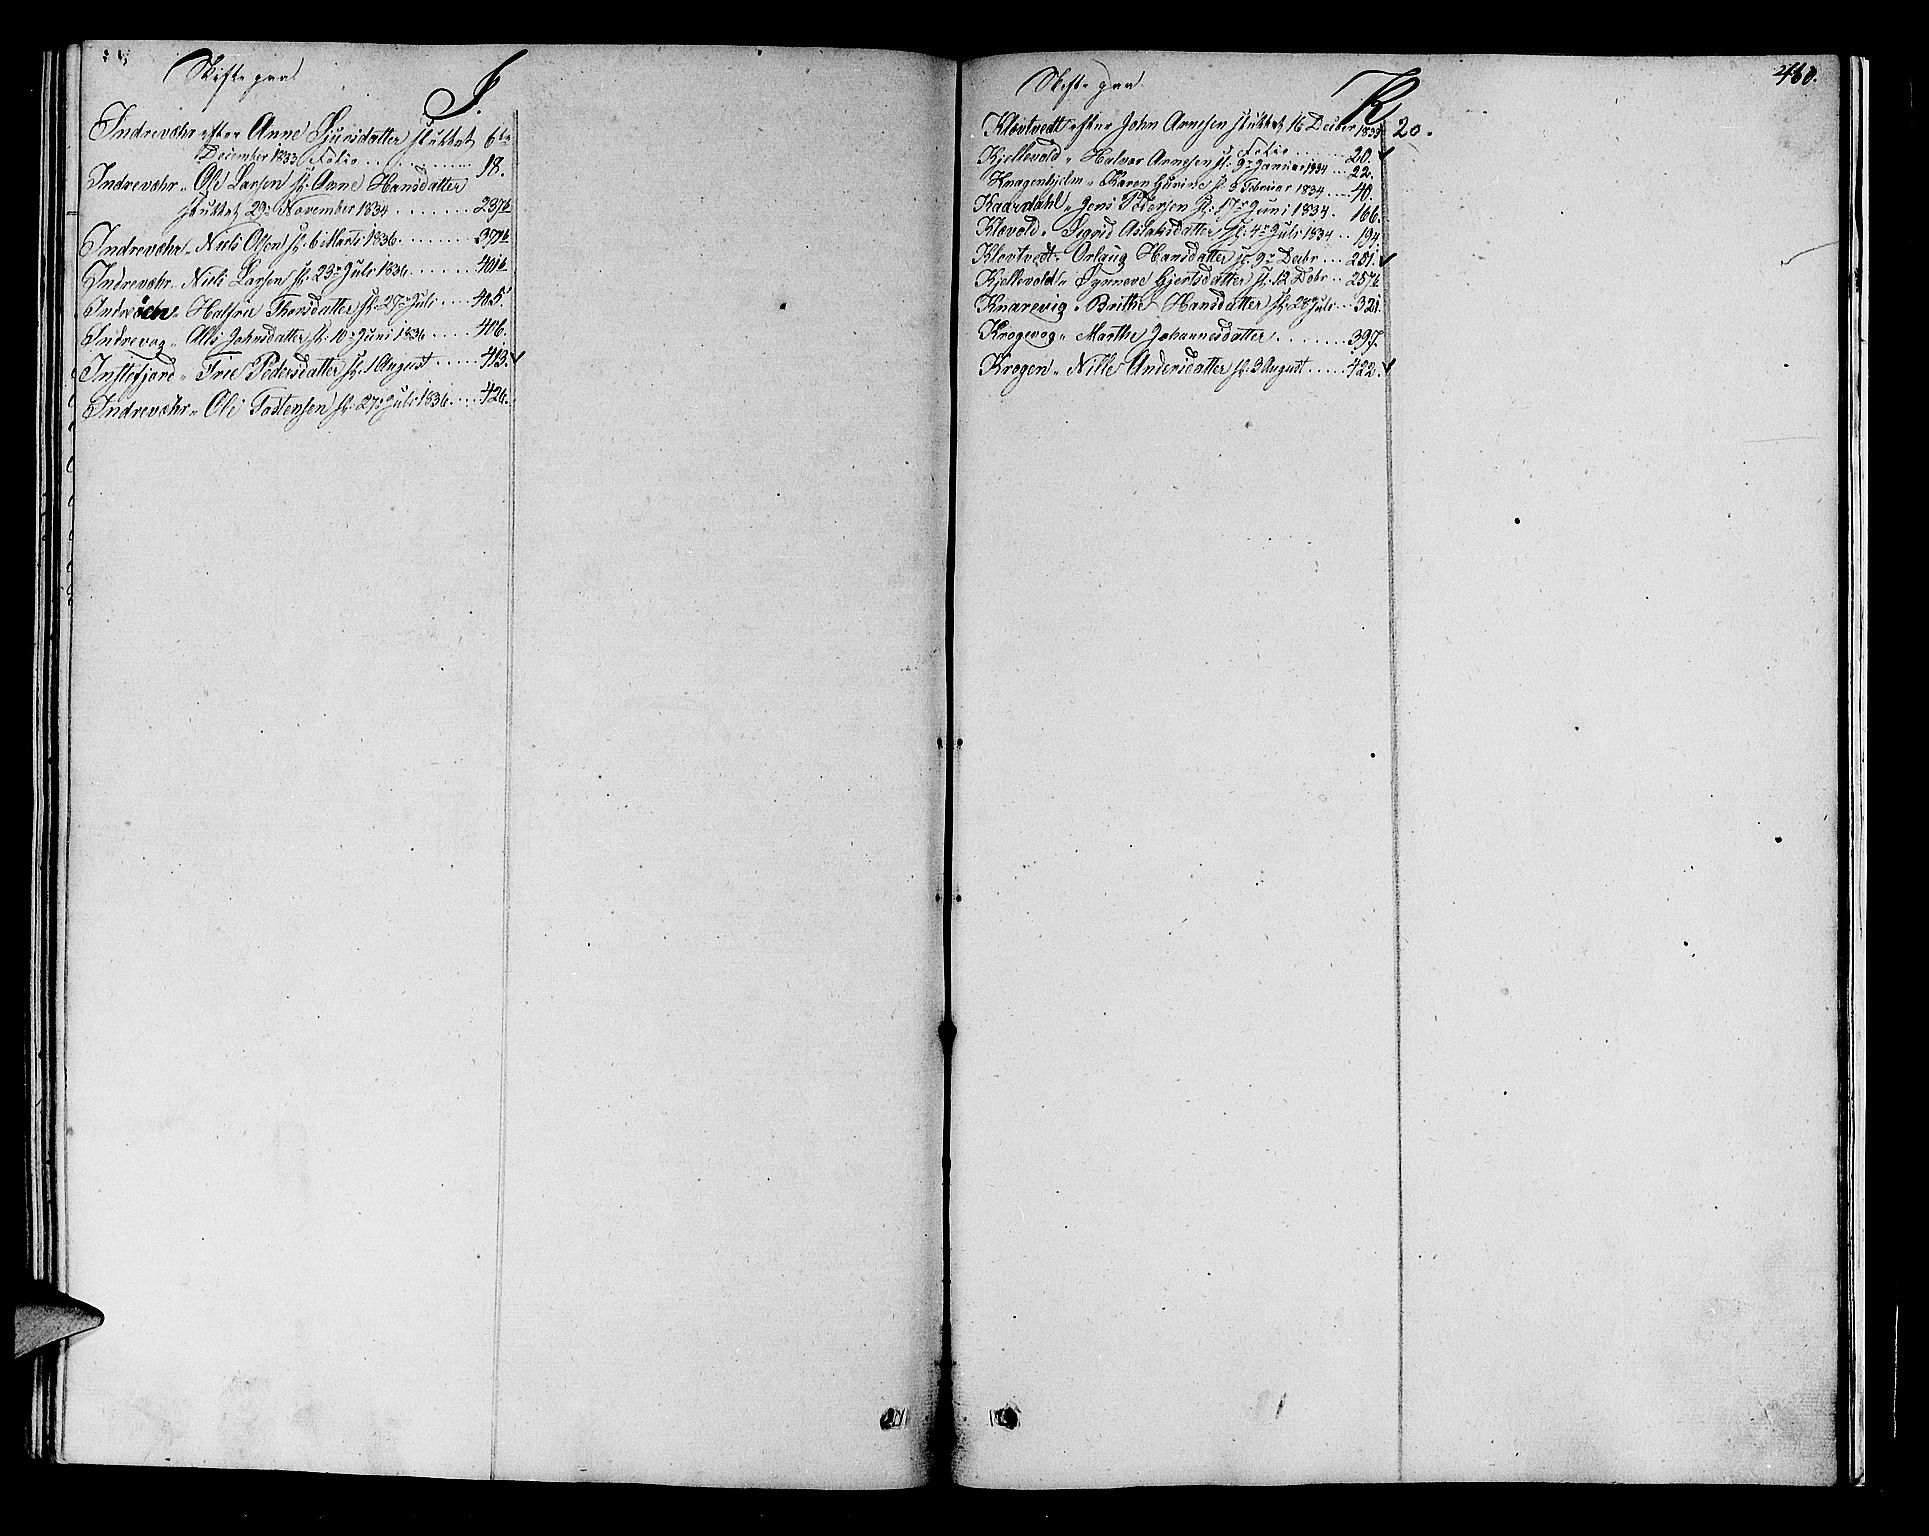 Skifte paa
I.
Indrevæhr efter Anne Sjursdatter sluttet 6te
December 1833 Folio . . . . . . . . . . 18.
Indrevæhr „ Ole Larsen sl: Anne Hansdatter
sluttet 29. November 1834 . . . . . . . . 237b
Indrevæhr „ Niels Olsen sl. 6 Marti 1836 . . . . . . . 377b
Indrevæhr „ Niels Larsen sl. 23. Juli 1836 . . . . . . 401b
Halfrie Thorsdatter sl. 27. Juli . . . . 405.
Indrevog „ Johnsdatter sl: 10. Juni 1836 . . . . . 406.
Instefjord „ Pedersdatter sl. 1 August . . . . . 413.
Indrevæhr „ Ole Tostensen sl. 27. Juli 1836 . . . . 426.
Skifte paa
K
460.
Kløvtvedt efter John Arnesen sluttet 16 Decber 1833 20.
Folio . . . . . . 20.
Kjellevold „ Halvor Arnesen sl. 9. Januar 1834 . . . 22.
Knagenhjelm „ Karen Gurine sl. 8 Februar 1834 . . . . 40.
Kaardahl „ Jens Pedersen sl. 17. Juni 1834 . 166.
Klævold „ Sigrid Aslaksdatter sl. 4. Juli 1834 . . 194.
Kløvtvedt „ Orlaug Hansdatter sl. 9. Decbr . . . 251.
Kjellevold „ Synneve Gjertsdatter sl. 12 Debr . . 257b
Knarevig „ Brithe Hansdatter sl. 28 Juli . . 321.
Krogevog „ Marthe Johannesdatter . . . . . . . . 397.
Krogen „ Nille Andersdatter sl. 3 August . . . . . 422.